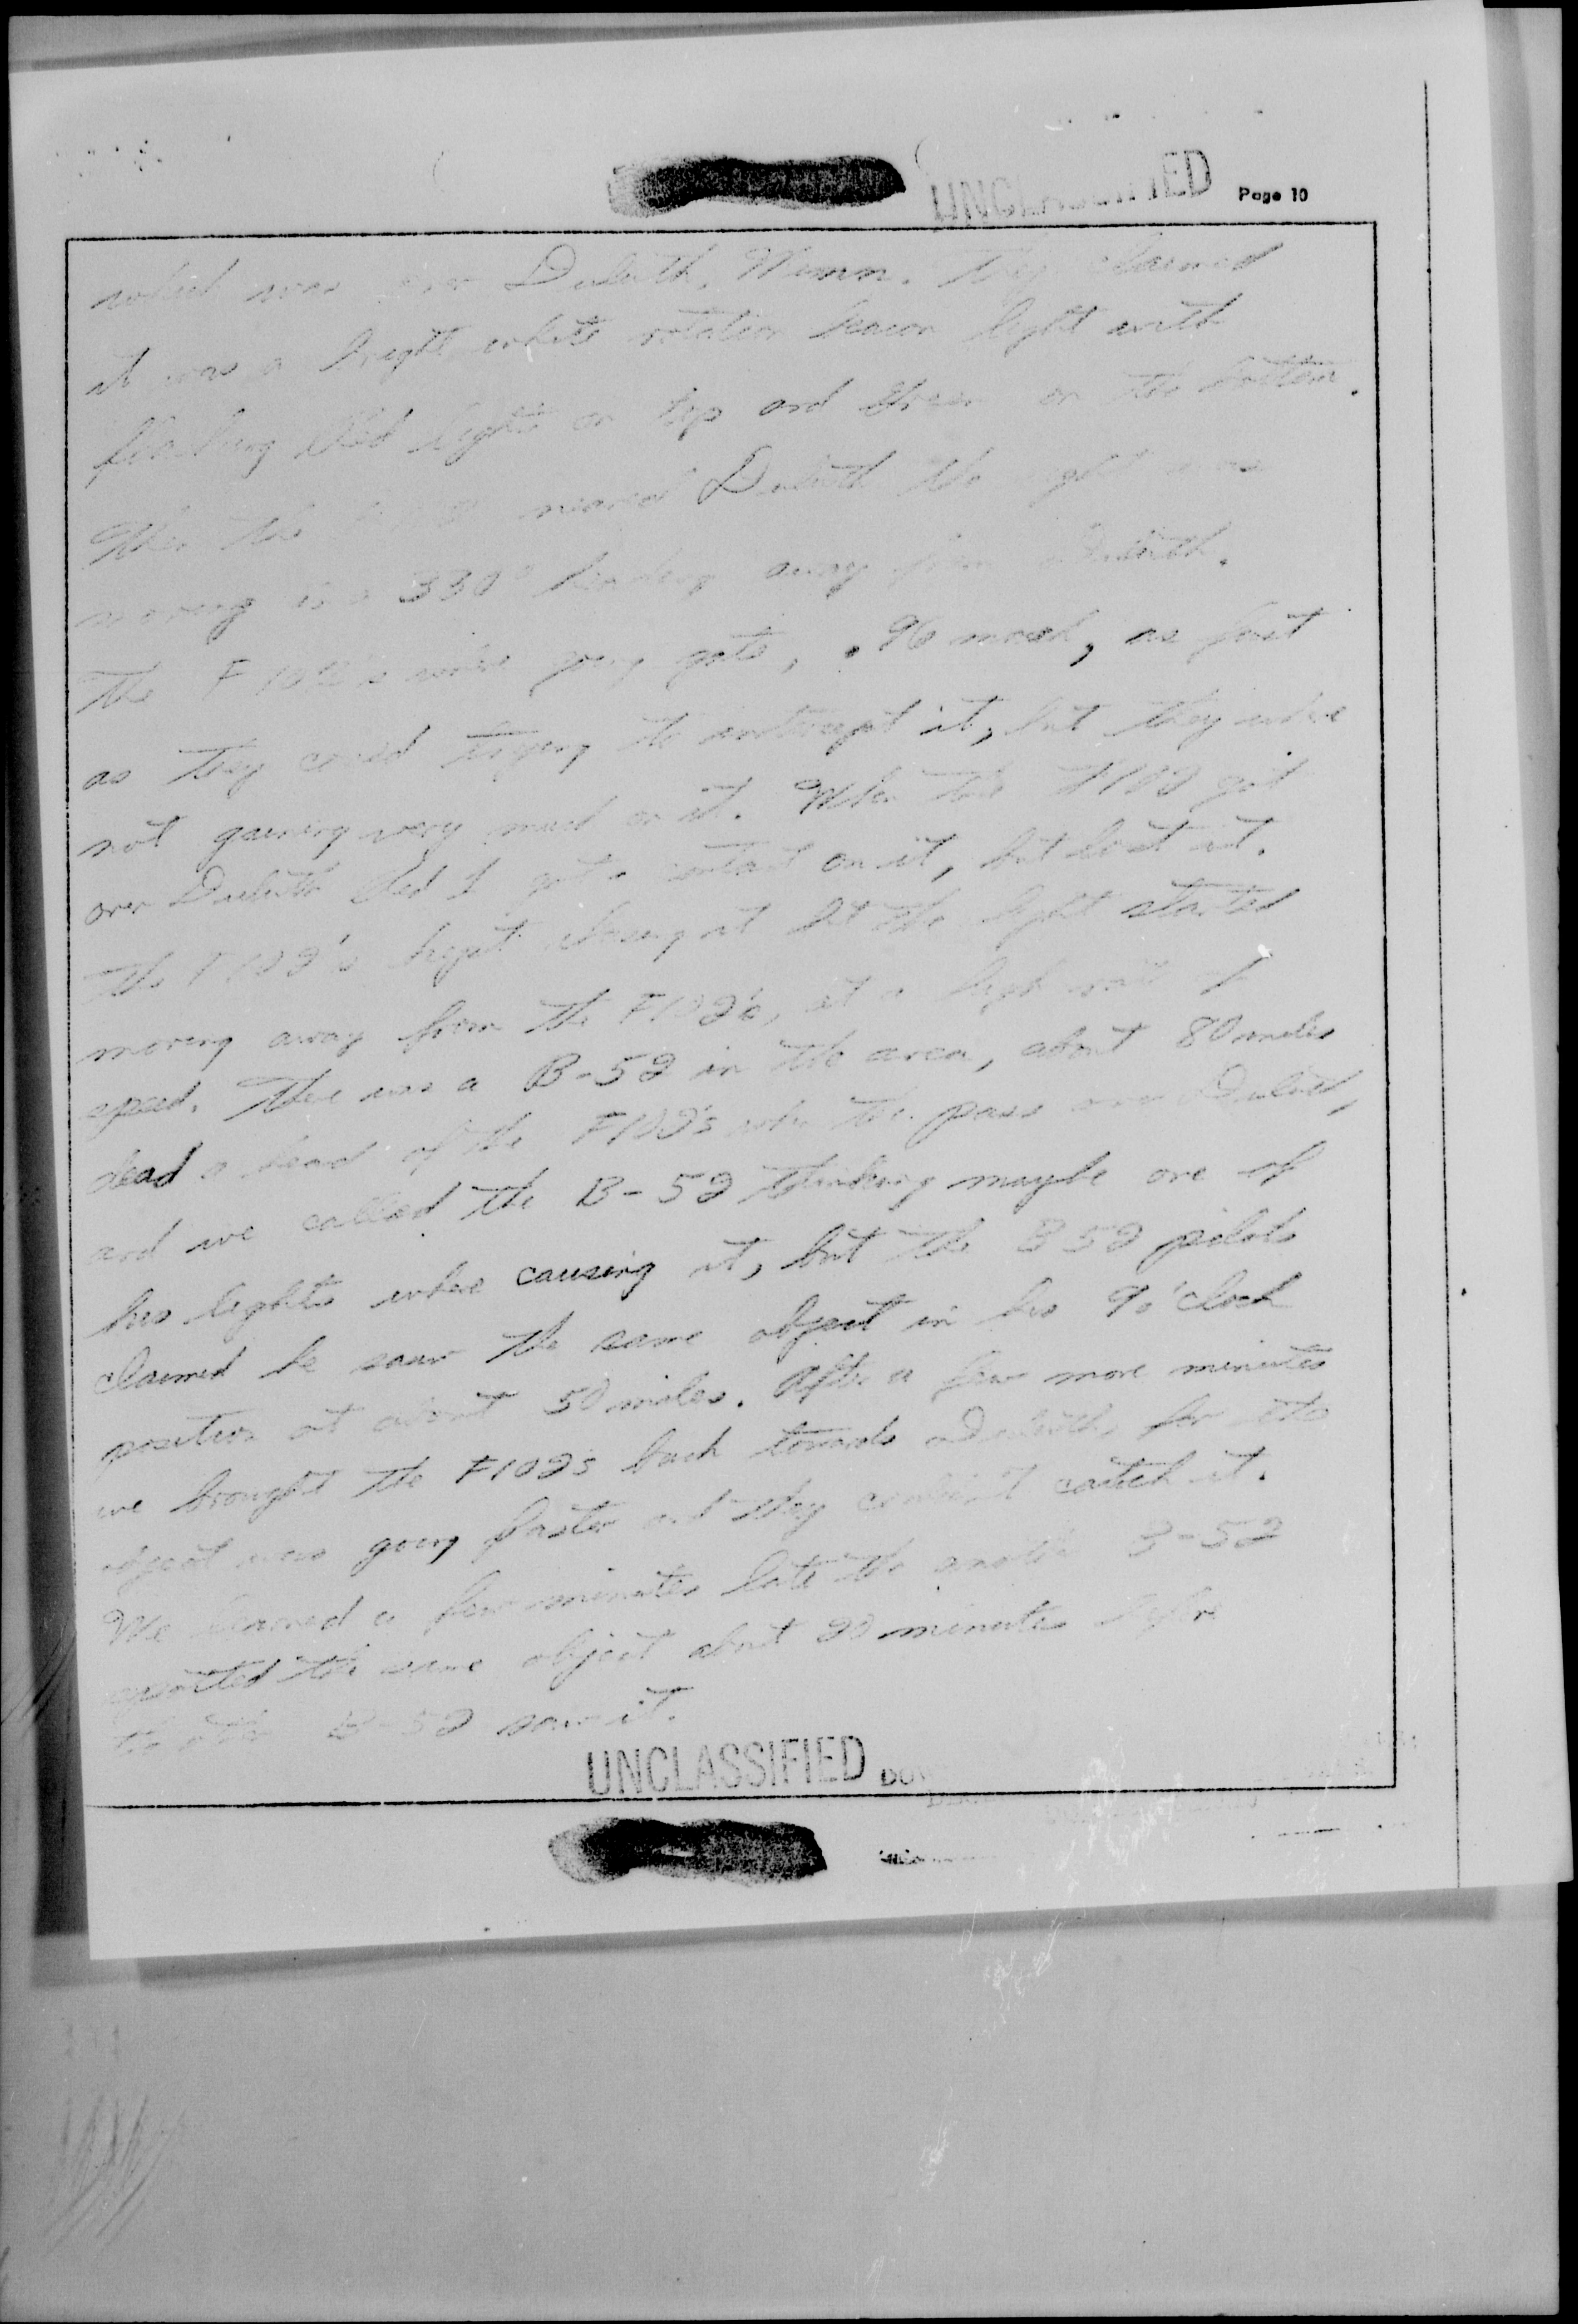 UNCLASSIFIED Page 10
which was over Duluth, Minn. They claimed
it was a bright white rotation beacon light with
flashing Red lights on top and Green on the bottom.
When the neared Duluth the light was
moving in a 330° heading away from Duluth.
The F102's where going gate, .96 mach, as fast
as they could trying to intercept it, but they where
not gaining very much on it. When the F102 got
over Duluth Red 1 got a contact on it, but lost it.
The F102's kept chasing it but the light started
moving away from the F102's, at a high rate of
speed. There was a B-52 in the area, about 80 miles
dead a head of the F102's when the pass over Duluth,
and we called the B-52 thinking maybe one of
his lights where causing it, but the B52 pilots
claimed he saw the same object in his 9 o'clock
position at about 50 miles. After a few more minutes
we brought the F102s back towards Duluth, for the
object was going faster and they couldn't catch it.
We learned a few minutes late the another B-52
reported the same object about 20 minutes before
the other B-52 saw it.
UNCLASSIFIED